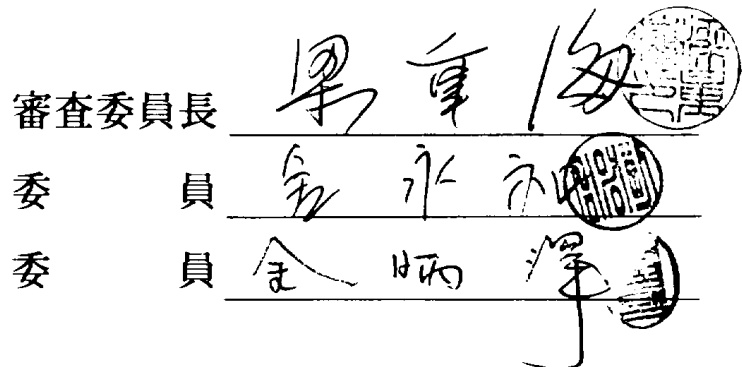 審査委員長 梁重海
委員 金永
委員 金炳澤